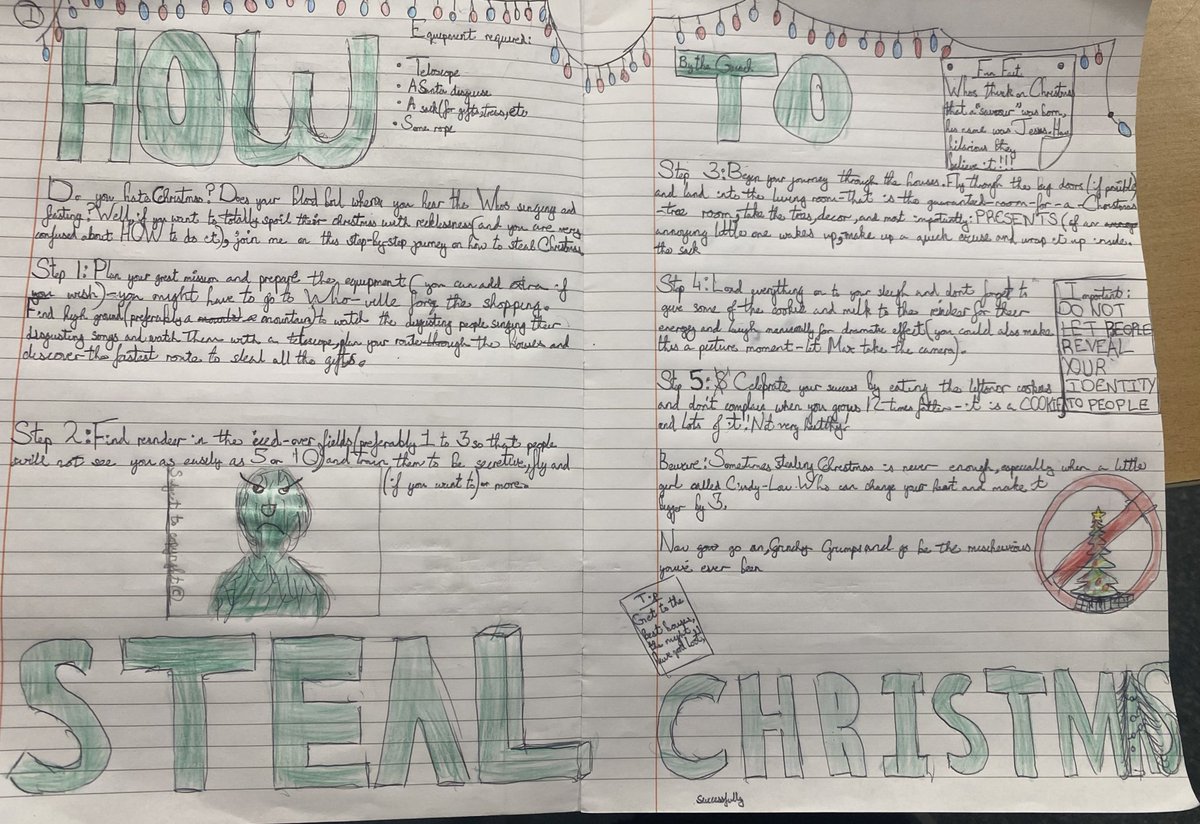 1
HOW
Equipment required:
• Telescope
• A Santa disguise
• A sack (for gifts, trees, etc
• Some rope
Do you hate Christmas? Does your blood boil where you hear the Whos singing and
feasting? Well, if you want to totally spoil their christmas with recklessness (and you are very
confused about HOW to do it), join me on this step-by-step journey on how to steal Christmas.
Step 1: Plan your great mission and prepare the equipment (you can add extra if
you wish) - you might have to go to Who-ville for the shopping.
Find high ground (preferably a mountain) to watch the disgusting people singing their
disgusting songs and watch Them with a telescope, plan your route through the houses and
discover the fastest route to steal all the gifts.
Step 2: Find reindeer in the iced-over fields (preferably 1 to 3 so that people
will not see you as easily as 5 or 10) and train them to be secretive, fly and
(if you want to) or more.
Subject to copyright ©
STEAL
By the Grinch
TO
Fun Fact
Whos think on Christmas
that a "saviour" was born,
his name was Jesus. How
hilarious they
believe it!!!
Step 3: Begin your journey through the houses. Fly though the big doors (if possible
and land into the living room-that is the guaranteed-room-for-a-Christmas
-tree room, take the trees, decor, and most importantly: PRESENTS (if an
annoying little one wakes up, make up a quick excuse and wrap it up inside
the sack
Step 4: Load everything on to your sleigh and dont forget to
give some of the cookie and milk to the reindeer for their
energy and laugh manically for dramatic effect (you could also make
this a picture moment - let Max take the camera).
Important:
DO NOT
LET PEOPLE
REVEAL
YOUR
IDENTITY
TO PEOPLE
Step 5: Celebrate your success by eating the leftover cookies
and don't complain when you grows 12 times fatter - it is a COOKIE
and lots of it! Not very healthy!
Beware: Sometimes stealing Christmas is never enough, especially when a little
girl called Cindy-Lou Who can change your heart and make it
bigger by 3.
Now go on, Grinchy Grumps and go be the mischievous
you've ever been
Tip
Get to the
best houses,
the might
have good loot!
CHRISTMAS
Successfully